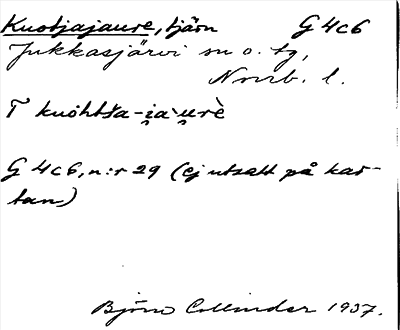 Kuotjajaure, tjärn G 4c6
Jukkasjärvi sn o. tg,
Norrb. l.
T kuohtša-i̯a`u̯rè
G 4c6, n:r 29 (ej utsatt på kar-
tan)
Björn Collinder 1937.